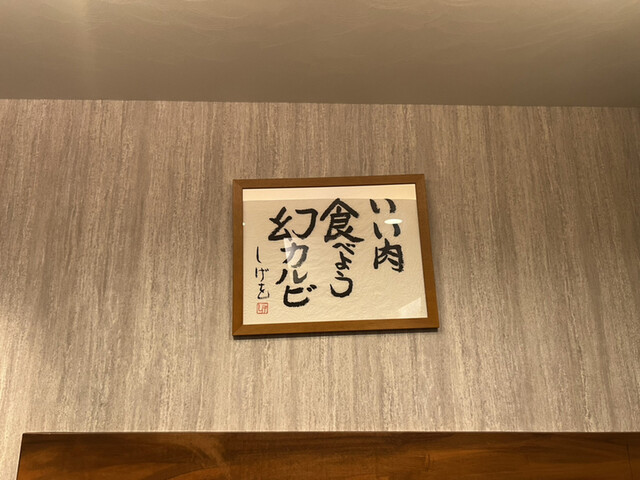 いい肉
食べよう
幻カルビ
しげを